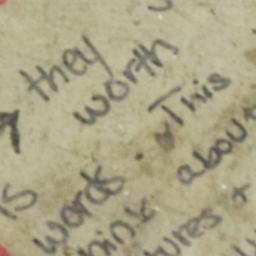 they
worth
is words. This
think about
tures +